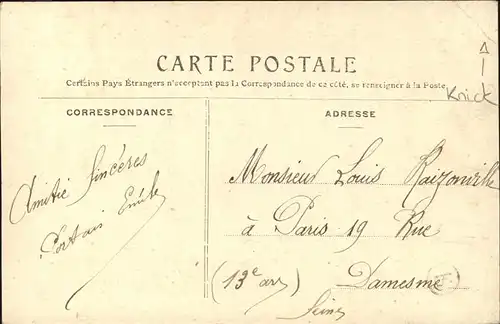 CARTE POSTALE
Certains Pays Étrangers n'acceptant pas la Correspondance de ce côté, se renseigner à la Poste.
Knick
CORRESPONDANCE
ADRESSE
Amitié Sincères
Emile
Monsieur Louis Raizonville
à Paris 19 Rue
Damesme
(13e arr)
Seine